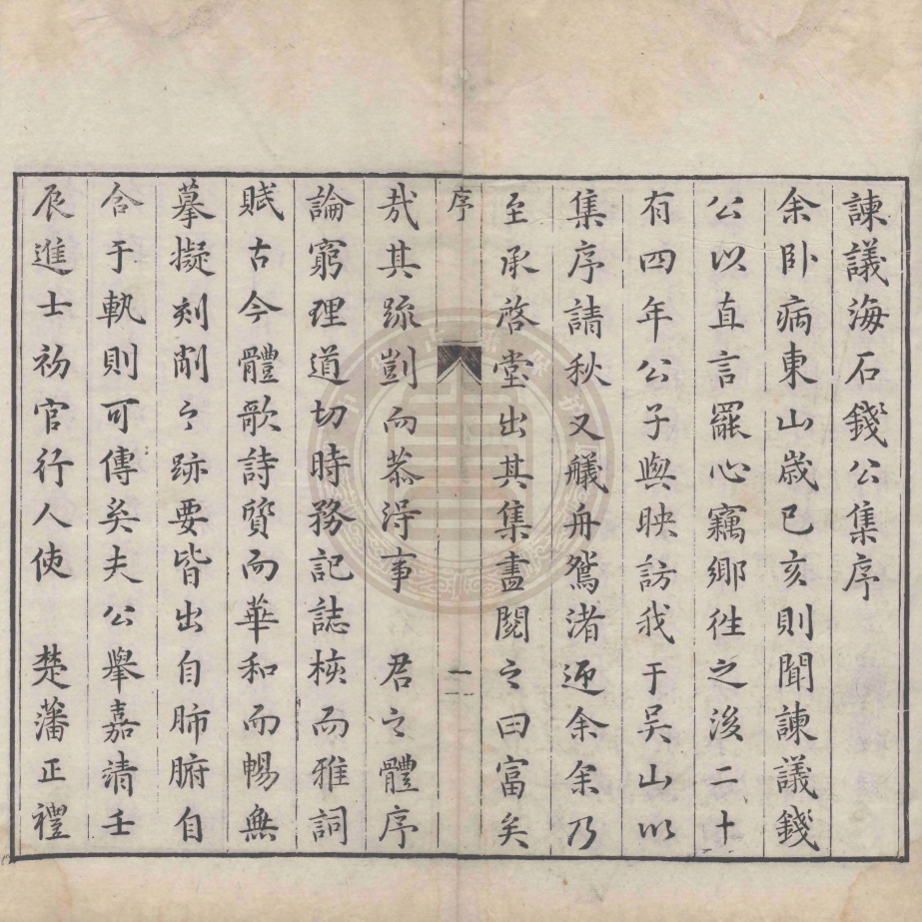 諫議海石錢公集序
余卧病東山歲已亥則聞諫議錢
公以直言罷心竊鄉徃之後二十
有四年公子與映訪我于吴山以
集序請秋又艤舟鴛渚迎余余乃
至承啓堂出其集盡閱之曰富矣
序
一
哉其疏剴而恭得事 君之體序
論窮理道切時務記誌核而雅詞
賦古今體歌詩質而華和而暢無
摹擬刻削之跡要皆出自肺腑自
合于軌則可傳矣夫公舉嘉靖壬
辰進士初官行人使 楚藩正禮